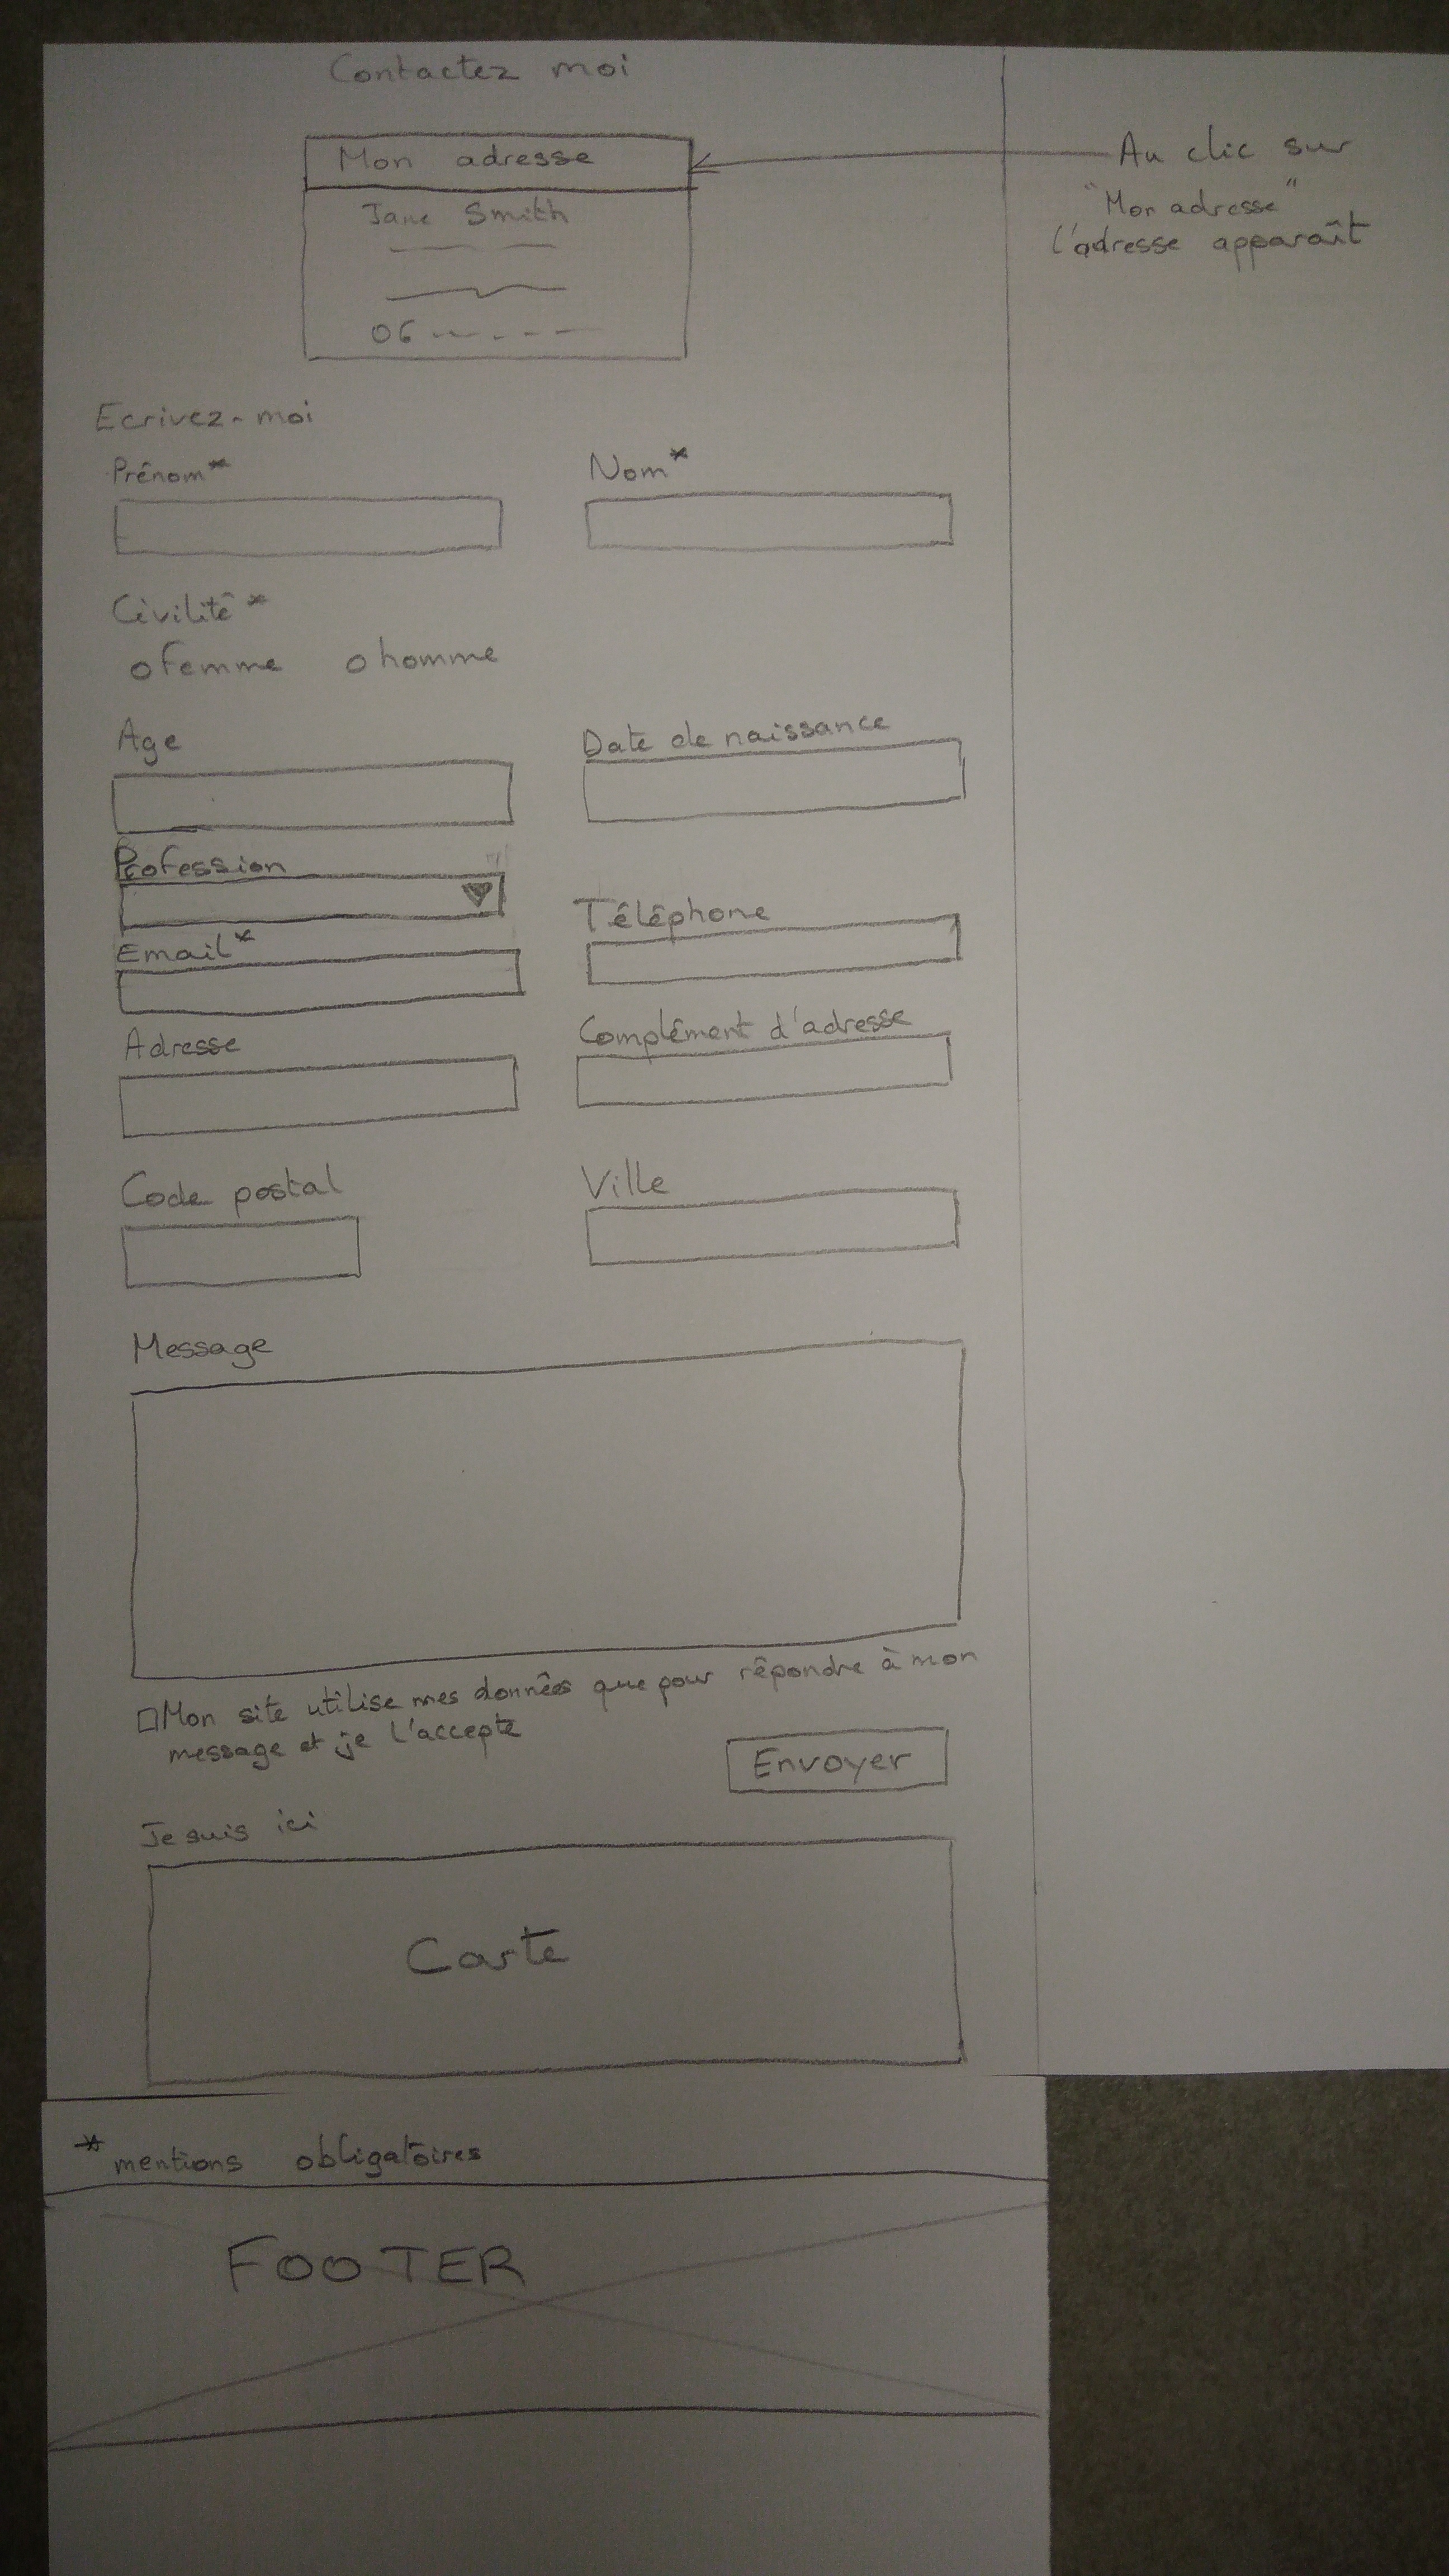 Contactez moi
Mon adresse
Jane Smith
06
Au clic sur
"Mon adresse"
l'adresse apparaît
Ecrivez-moi
Prénom*
Nom*
Civilité*
o Femme o homme
Age
Date de naissance
Profession
Téléphone
Email*
Adresse
Complément d'adresse
Code postal
Ville
Message
Mon site utilise mes données que pour répondre à mon
message et je l'accepte
Envoyer
Je suis ici
Carte
*mentions obligatoires
FOOTER